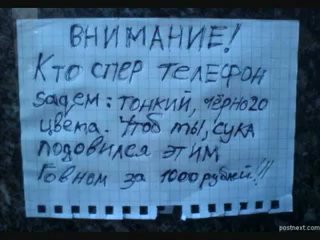 ВНИМАНИЕ!
Кто спер телефон
задем: тонкий, чёрного
цвета. Чтоб ты, сука
подовился этим
Говном за 1000 рублей!!!
postnext.com